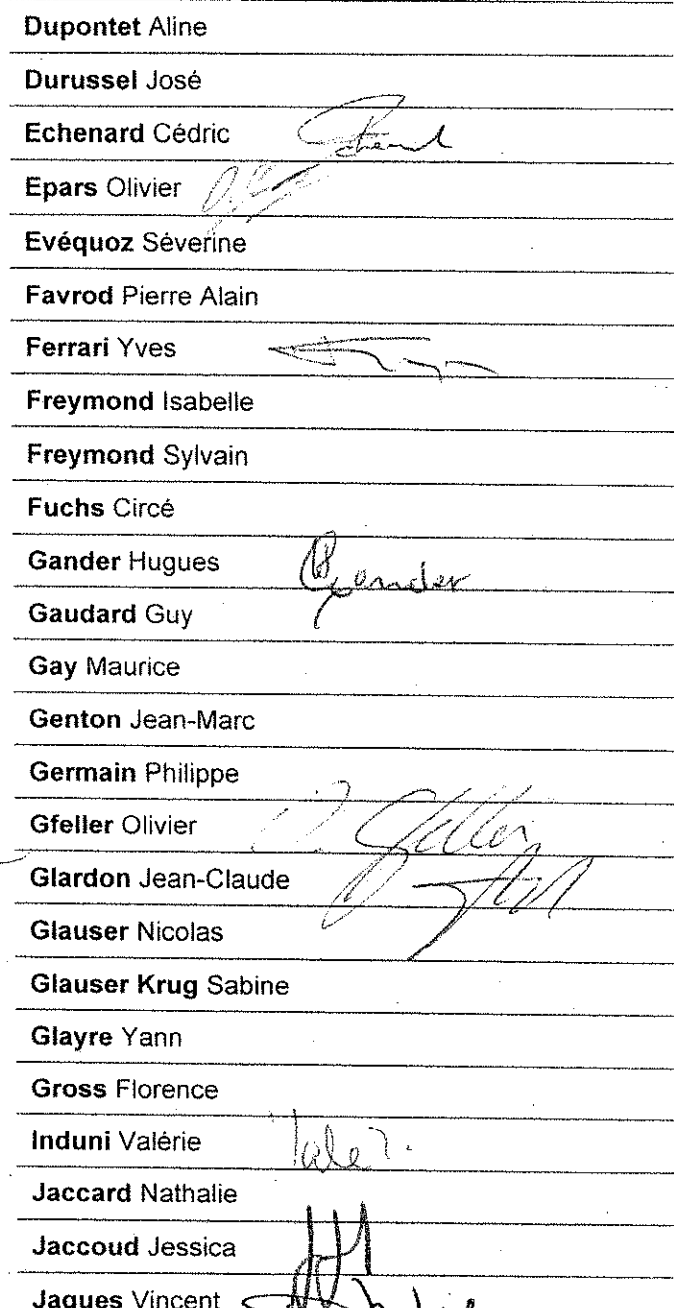 Dupontet Aline
Durussel José
Echenard Cédric
Epars Olivier
Evéquoz Séverine
Favrod Pierre Alain
Ferrari Yves
Freymond Isabelle
Freymond Sylvain
Fuchs Circé
Gander Hugues Gander
Gaudard Guy
Gay Maurice
Genton Jean-Marc
Germain Philippe
Gfeller Olivier O. Gfeller
Glardon Jean-Claude
Glauser Nicolas
Glauser Krug Sabine
Glayre Yann
Gross Florence
Induni Valérie
Jaccard Nathalie
Jaccoud Jessica
Jaques Vincent